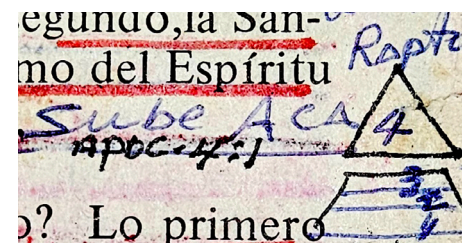 egundo,la San-
Rapto
mo del Espíritu
Sube ACA 4
APOC-4:1
3
2
o? Lo primero
1